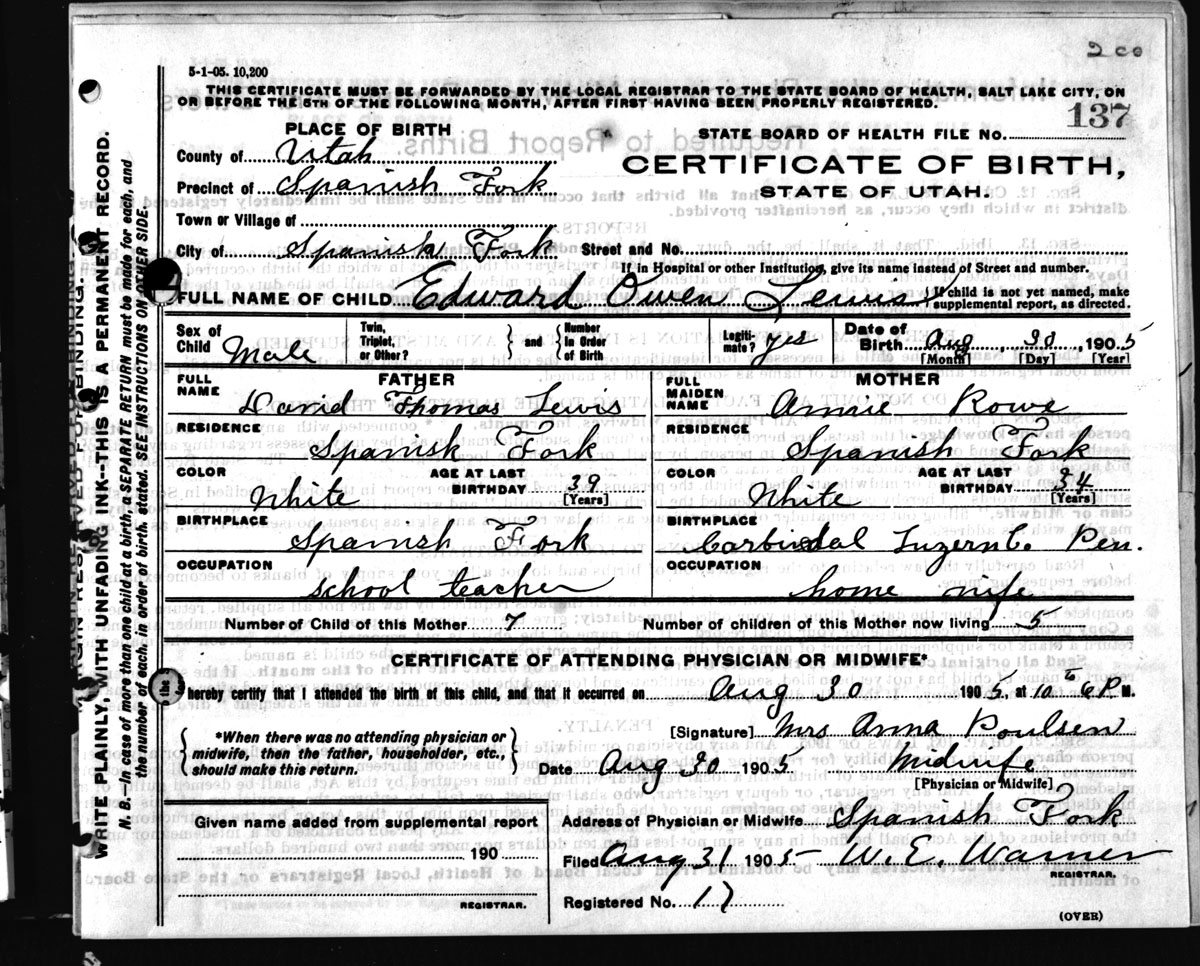 2 co
5-1-05. 10,200
THIS CERTIFICATE MUST BE FORWARDED BY THE LOCAL REGISTRAR TO THE STATE BOARD OF HEALTH, SALT LAKE CITY, ON
OR BEFORE THE 5TH OF THE FOLLOWING MONTH, AFTER FIRST HAVING BEEN PROPERLY REGISTERED.
137
PLACE OF BIRTH
STATE BOARD OF HEALTH FILE No.
County of Utah
CERTIFICATE OF BIRTH,
Precinct of Spanish Fork
STATE OF UTAH.
Town or Village of
City of Spanish Fork Street and No.
If in Hospital or other Institution, give its name instead of Street and number.
FULL NAME OF CHILD Edward Owen Lewis { If child is not yet named, make
supplemental report, as directed.
Sex of Child Male
Twin, Triplet, or Other? } and { Number in Order of Birth
Legitimate? yes
Date of Birth Aug 30, 1905
[Month] [Day] [Year]
FATHER
FULL NAME David Thomas Lewis
RESIDENCE Spanish Fork
COLOR White
AGE AT LAST BIRTHDAY 39
[Years]
BIRTHPLACE Spanish Fork
OCCUPATION school teacher
MOTHER
FULL MAIDEN NAME Annie Rowe
RESIDENCE Spanish Fork
COLOR White
AGE AT LAST BIRTHDAY 34
[Years]
BIRTHPLACE Luzern C. Pen.
OCCUPATION home wife
Number of Child of this Mother 7 Number of children of this Mother now living 5
CERTIFICATE OF ATTENDING PHYSICIAN OR MIDWIFE*
I hereby certify that I attended the birth of this child, and that it occurred on Aug 30 1905 at 10 P M.
*When there was no attending physician or
midwife, then the father, householder, etc.,
should make this return.
[Signature] Mrs Anna Poulsen
Date Aug 30 1905 Midwife
[Physician or Midwife]
Given name added from supplemental report
190
REGISTRAR.
Address of Physician or Midwife Spanish Fork
Filed Aug 31 1905 W. E. Warner
REGISTRAR.
Registered No. 17
(OVER)
WRITE PLAINLY, WITH UNFADING INK--THIS IS A PERMANENT RECORD.
N. B.--In case of more than one child at a birth, a SEPARATE RETURN must be made for each, and
the number of each, in order of birth, stated. SEE INSTRUCTIONS ON OTHER SIDE.
MARGIN RESERVED FOR BINDING.